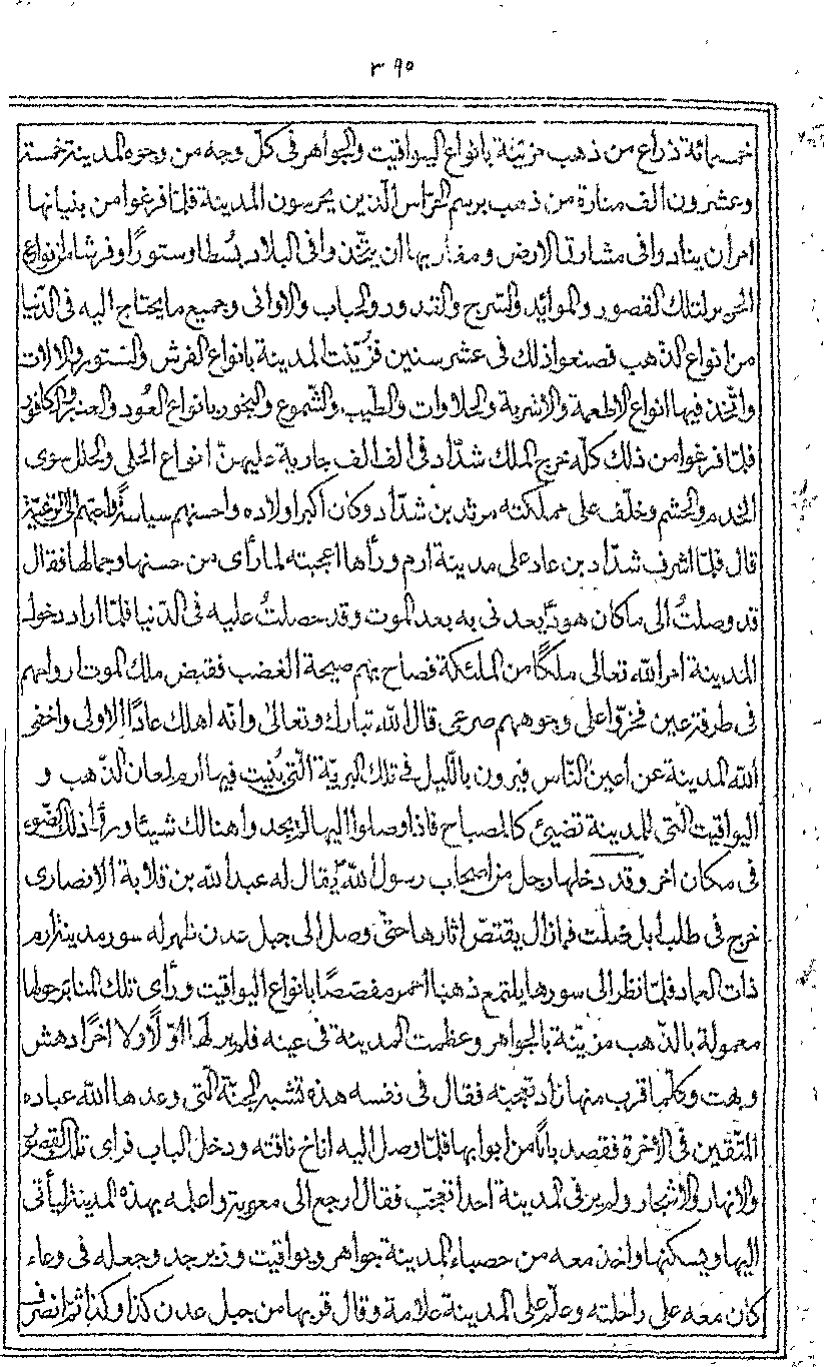 ٣٩٥
خمسمائة ذراع من ذهب مزينة بانواع اليواقيت والجواهر فى كل وجه من وجوه المدينة خمسة
وعشرون الف منارة من ذهب برسم الحراس الذين يحرسون المدينة فلمّا فرغوا من بنيانها
امر ان ينادوا فى مشارق الارض ومغاربها ان يتّخذوا فى البلاد بُسطا وستورًا وفرشا من انواع
الحرير لتلك القصور والموائد والسرج والقدور والحباب والاوانى وجميع ما يحتاج اليه فى الدّنيا
من انواع الذّهب فصنعوا ذلك فى عشر سنين فزُيّنت المدينة بانواع الفرش والستور والالات
واتّخذ فيها انواع الاطعمة والاشربة والحلاوات والطّيب والشّموع والبخور بانواع العُود والعنبر والكافور
فلمّا فرغوا من ذلك كلّه خرج الملك شدّاد فى الف الف جارية عليهنّ انواع الحلى والحلل سوى
الخدم والحشم وخلّف على مملكته مرثد بن شدّاد وكان اكبر اولاده واحسنهم سياسةً واحبّهم الى الرّعيّة
قال فلمّا اشرف شدّاد بن عاد على مدينة ارم ورأها اعجبته لما رأى من حسنها وجمالها فقال
قد وصلتُ الى ما كان هودٌ يعدنى به بعد الموت وقد حصلتُ عليه فى الدّنيا فلمّا اراد دخول
المدينة امر الله تعالى ملكًا من الملئكة فصاح بهم صيحة الغضب فقبض ملك الموت ارواحهم
فى طرفة عين فخرّوا على وجوههم صرعى قال الله تبارك وتعالى وانّه اهلك عادًا الاولى واخفى
الله المدينة عن اعين النّاس فيرون باللّيل فى تلك البريّة الّتى بُنيت فيها ارم لمعان الذّهب و
اليواقيت الّتى للمدينة تضيئ كالمصباح فاذا وصلوا اليها لم يجدوا هنالك شيئا ورأوا ذلك الضّوء
فى مكان اخر وقد دخلها رجل من اصحاب رسول الله يقال له عبد الله بن قلابة الانصارى
خرج فى طلب ابل ضلّت فما زال يقتصّ اثارها حتّى وصل الى جبل عدن فظهر له سور مدينة ارم
ذات العماد فلمّا نظر الى سورها يلتمع ذهبا احمر مفصّصًا بانواع اليواقيت ورأى تلك المنابر حولها
معمولة بالذّهب مزيّنة بالجواهر وعظمت المدينة فى عينه فلم ير لها اوّلًا ولا اخرًا دهش
وبهت وكلّما قرب منها زاد تعجّبه فقال فى نفسه هذه تشبه الجنّة الّتى وعدها الله عباده
المتّقين فى الاخرة فقصد بابًا من ابوابها فلمّا وصل اليه اناخ ناقته ودخل الباب فراى تلك القصور
والانهار والاشجار ولم ير فى المدينة احدا تعجّب فقال ارجع الى معوية واعلمه بهذه المدينة ليأتى
اليها ويسكنها واخذ معه من حصباء المدينة جواهر ويواقيت وزبرجد وجعله فى وعاء
كان معه على راحلته وعلّم على المدينة علامة وقال قربها من جبل عدن كذا وكذا ثم انصرف